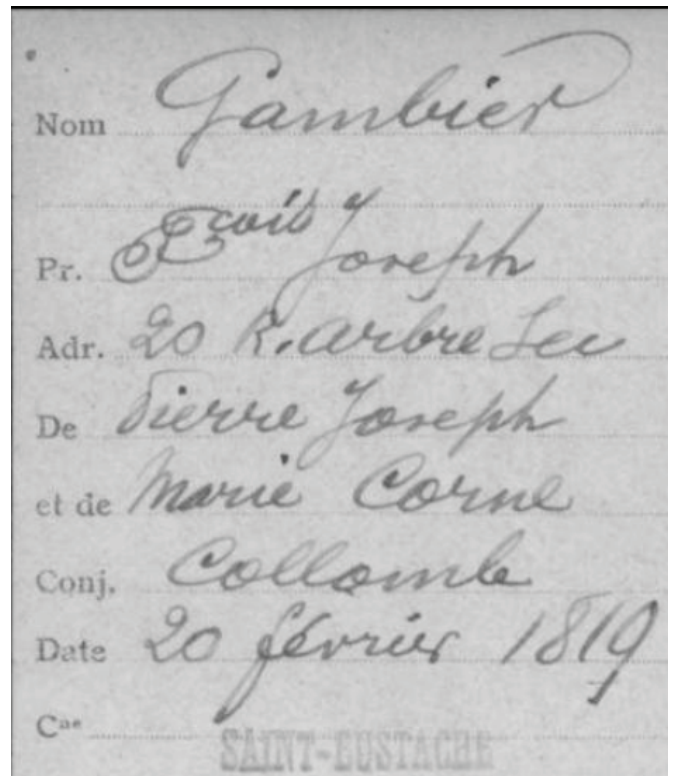 Nom Gambier
Pr. Joseph
Adr. 20 R. arbre Sec
De Pierre Joseph
et de Marie Corne
Conj. Collomb
Date 20 février 1819
Cne
SAINT-EUSTACHE